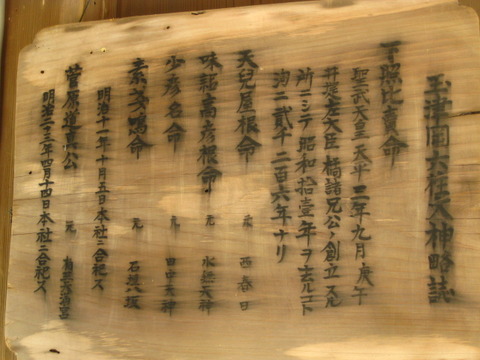 玉津岡大社大神略誌
下照比賣命
聖武天皇天平二年九月庚午
井堤左大臣橘諸兄公ノ創立スル
所ニシテ昭和拾壹年ヲ去ルコト
二百六年ナリ
天兒屋根命 元 西春日
味耜高彦根命 元 天神
少彦名命 元 田中天神
素戔嗚命 元 石 八坂
明治十一年十月五日本社ニ合祀ス
菅原道真公 元
明治三十三年四月十四日本社ニ合祀ス